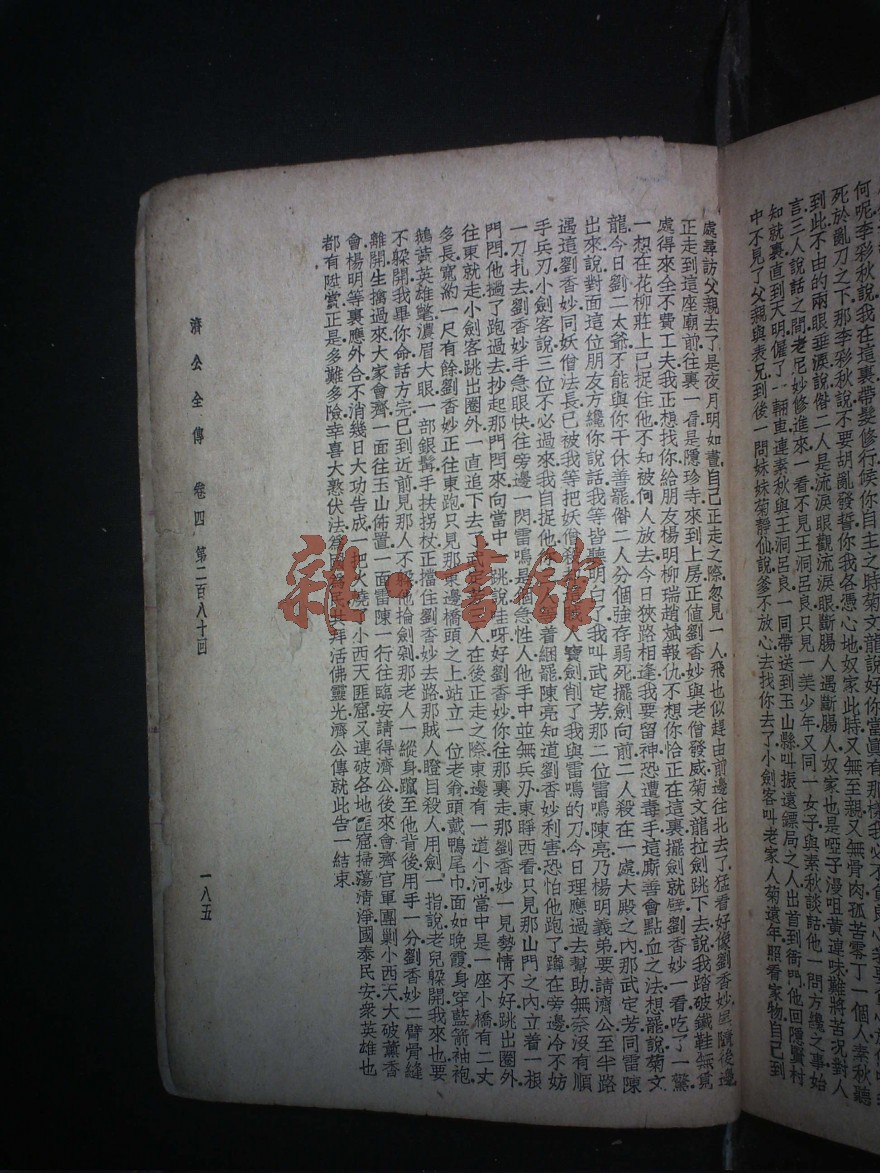 何呢李彩秋說我在這裏帶髮修行候你自主之時菊文龍說好你當眞有那樣
死於亂刀之下那李彩秋說不要胡亂發誓你我各憑心地奴家此時又無至親又無骨肉孤苦零丁一個人素秋聽
到此不由的兩眼垂淚說偺二人是流淚眼觀流淚眼斷腸人遇斷腸人奴家也是啞子漫咀黃連味難將苦況對人
言三人說話之間老尼妙修進來一看不見王洞呂良只見一美少年又同一女子與素秋談話他一問方纔之事始
知就裏直到天明僱了一輛車連素秋與王洞呂良一同帶送到玉山縣叫振遠鏢局之人出首到衙門他回隱賢村
中不見了父親與表兄到後一問妹妹菊靜仙說爹不放心去找你去了小劍客叫老家人菊遠年照看家物自己到
處尋訪父親去了是夜月明如晝自己正走之際忽見一人飛也似趕由前邊往北去了猛看好像劉香妙尾隨後邊
正走到這座廟前往裏一看是隱珍寺來到上房正値劉香妙與老僧發威菊文龍拉劍跳下去說我踏破鐵鞋無覓
處得來全不費工夫我正想找你給朋友楊明柳瑞趙斌報仇不想你恰正在這裏擺劍就劈劉香妙一看吃了一驚
一想在花柳莊上已捉住他不知被何人放去今日狹路相逢我要留神恐遭毒手這廝善會點血之法想罷說菊文
龍今日劉二太爺不能與你干休善罷偺二人分個強存弱死擺劍向前二人殺在一處大殿之內那武定芳同雷陳
出來說對面這位朋友方纔你說話我等皆聽明白了我叫武定芳那二位雷鳴陳亮乃楊明義弟要請濟公至半路
遇這劉香妙同妖僧法長已被我等把妖僧殺賊人寶劍削了我與雷鳴的刀今日理應過去幫助無奈沒有順
手兵刃小劍客說三位不必過來我自捉他不著綑罷陳亮知道劉香妙利害恐怕他跑了蹲在旁邊冷不妨
一刀扎去劉香妙手急眼快往旁邊一閃雷鳴是個急性人他手中並無兵刃東睜西看只見那山門之內立着一根
門閂他搧了跑過去抄起那門閂來向當中一跳說哇呀好劉香妙你往那裏走那劉香妙一見勢情不好跳出圈外
往東就走小劍客跳出圈外一直追下去人在後正走之際東邊有一道小河當中是一座小橋有二丈
多長寬約一尺有餘劉香妙正往東跑只見那東邊橋頭之上站立一位老翁頭戴鴨尾巾面如晚霞身穿藍箭袖袍
鵝黃英雄氅濃眉大眼一部銀髯手扶拐杖正擋住劉香妙去路那賊人瞪目殺人用劍一指說老兒躲開我來也要
不躲開我畢你命話方完已到近前見那人不躱他掄劍剁那老人一縱身躥至他背後用手一分劉香妙二臂骨縫
離開生擒過來大家會齊一面往玉山佈置一面雷陳一行往臨安請得濟公後來會齊官軍團剿小西天大破薰香
會楊明等裏應外合不消幾日大功告成一把火燒了小西天匪窟又連破各地匪窟掃蕩清淨國泰民安衆英雄也
都有陞賞正是多難多險幸喜大憝伏法爲國爲民共拜活佛靈光濟公傳就此告一結束
濟公全傳　卷四　第二百八十回　一八五
雜·書館